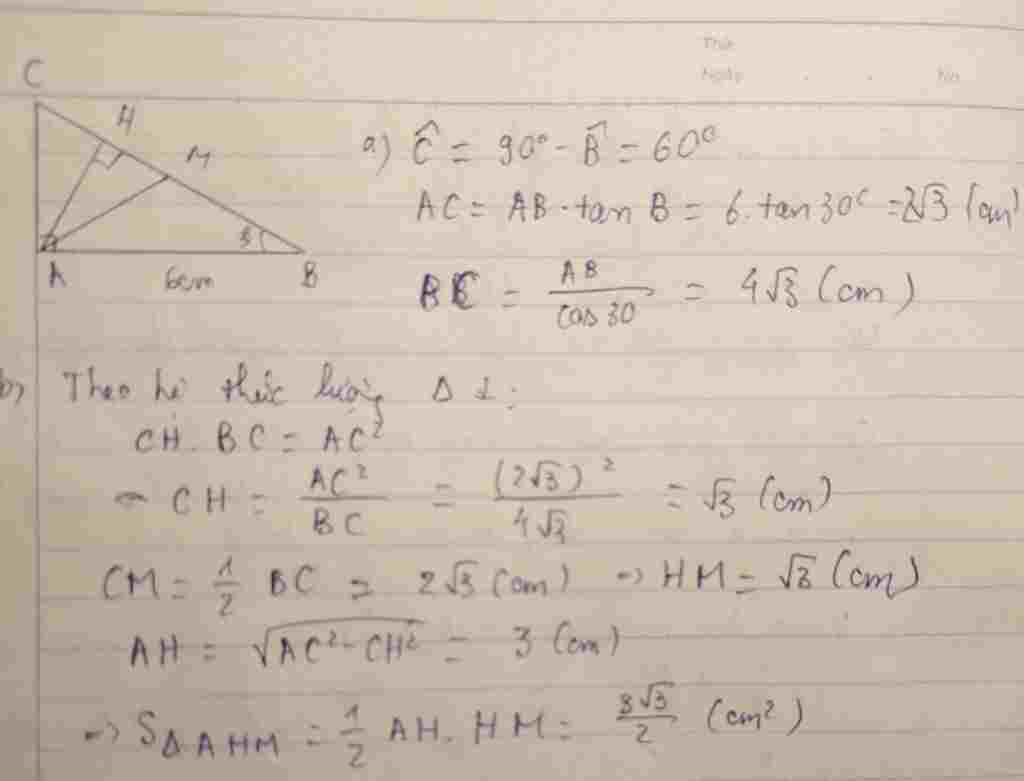 Thứ
Ngày . . No
C
H
M
A 6cm B
a) Ĉ = 90° - B̂ = 60°
AC = AB · tan B = 6. tan 30° = 2√3 (cm)
BC = AB / cos 30 = 4√3 (cm)
b) Theo hệ thức lượng Δ ⊥:
CH. BC = AC²
CH = AC² / BC = (2√3)² / 4√3 = √3 (cm)
CM = 1/2 BC = 2√3 (cm) => HM = √3 (cm)
AH = √(AC² - CH²) = 3 (cm)
=> SΔAHM = 1/2 AH. HM = 3√3 / 2 (cm²)